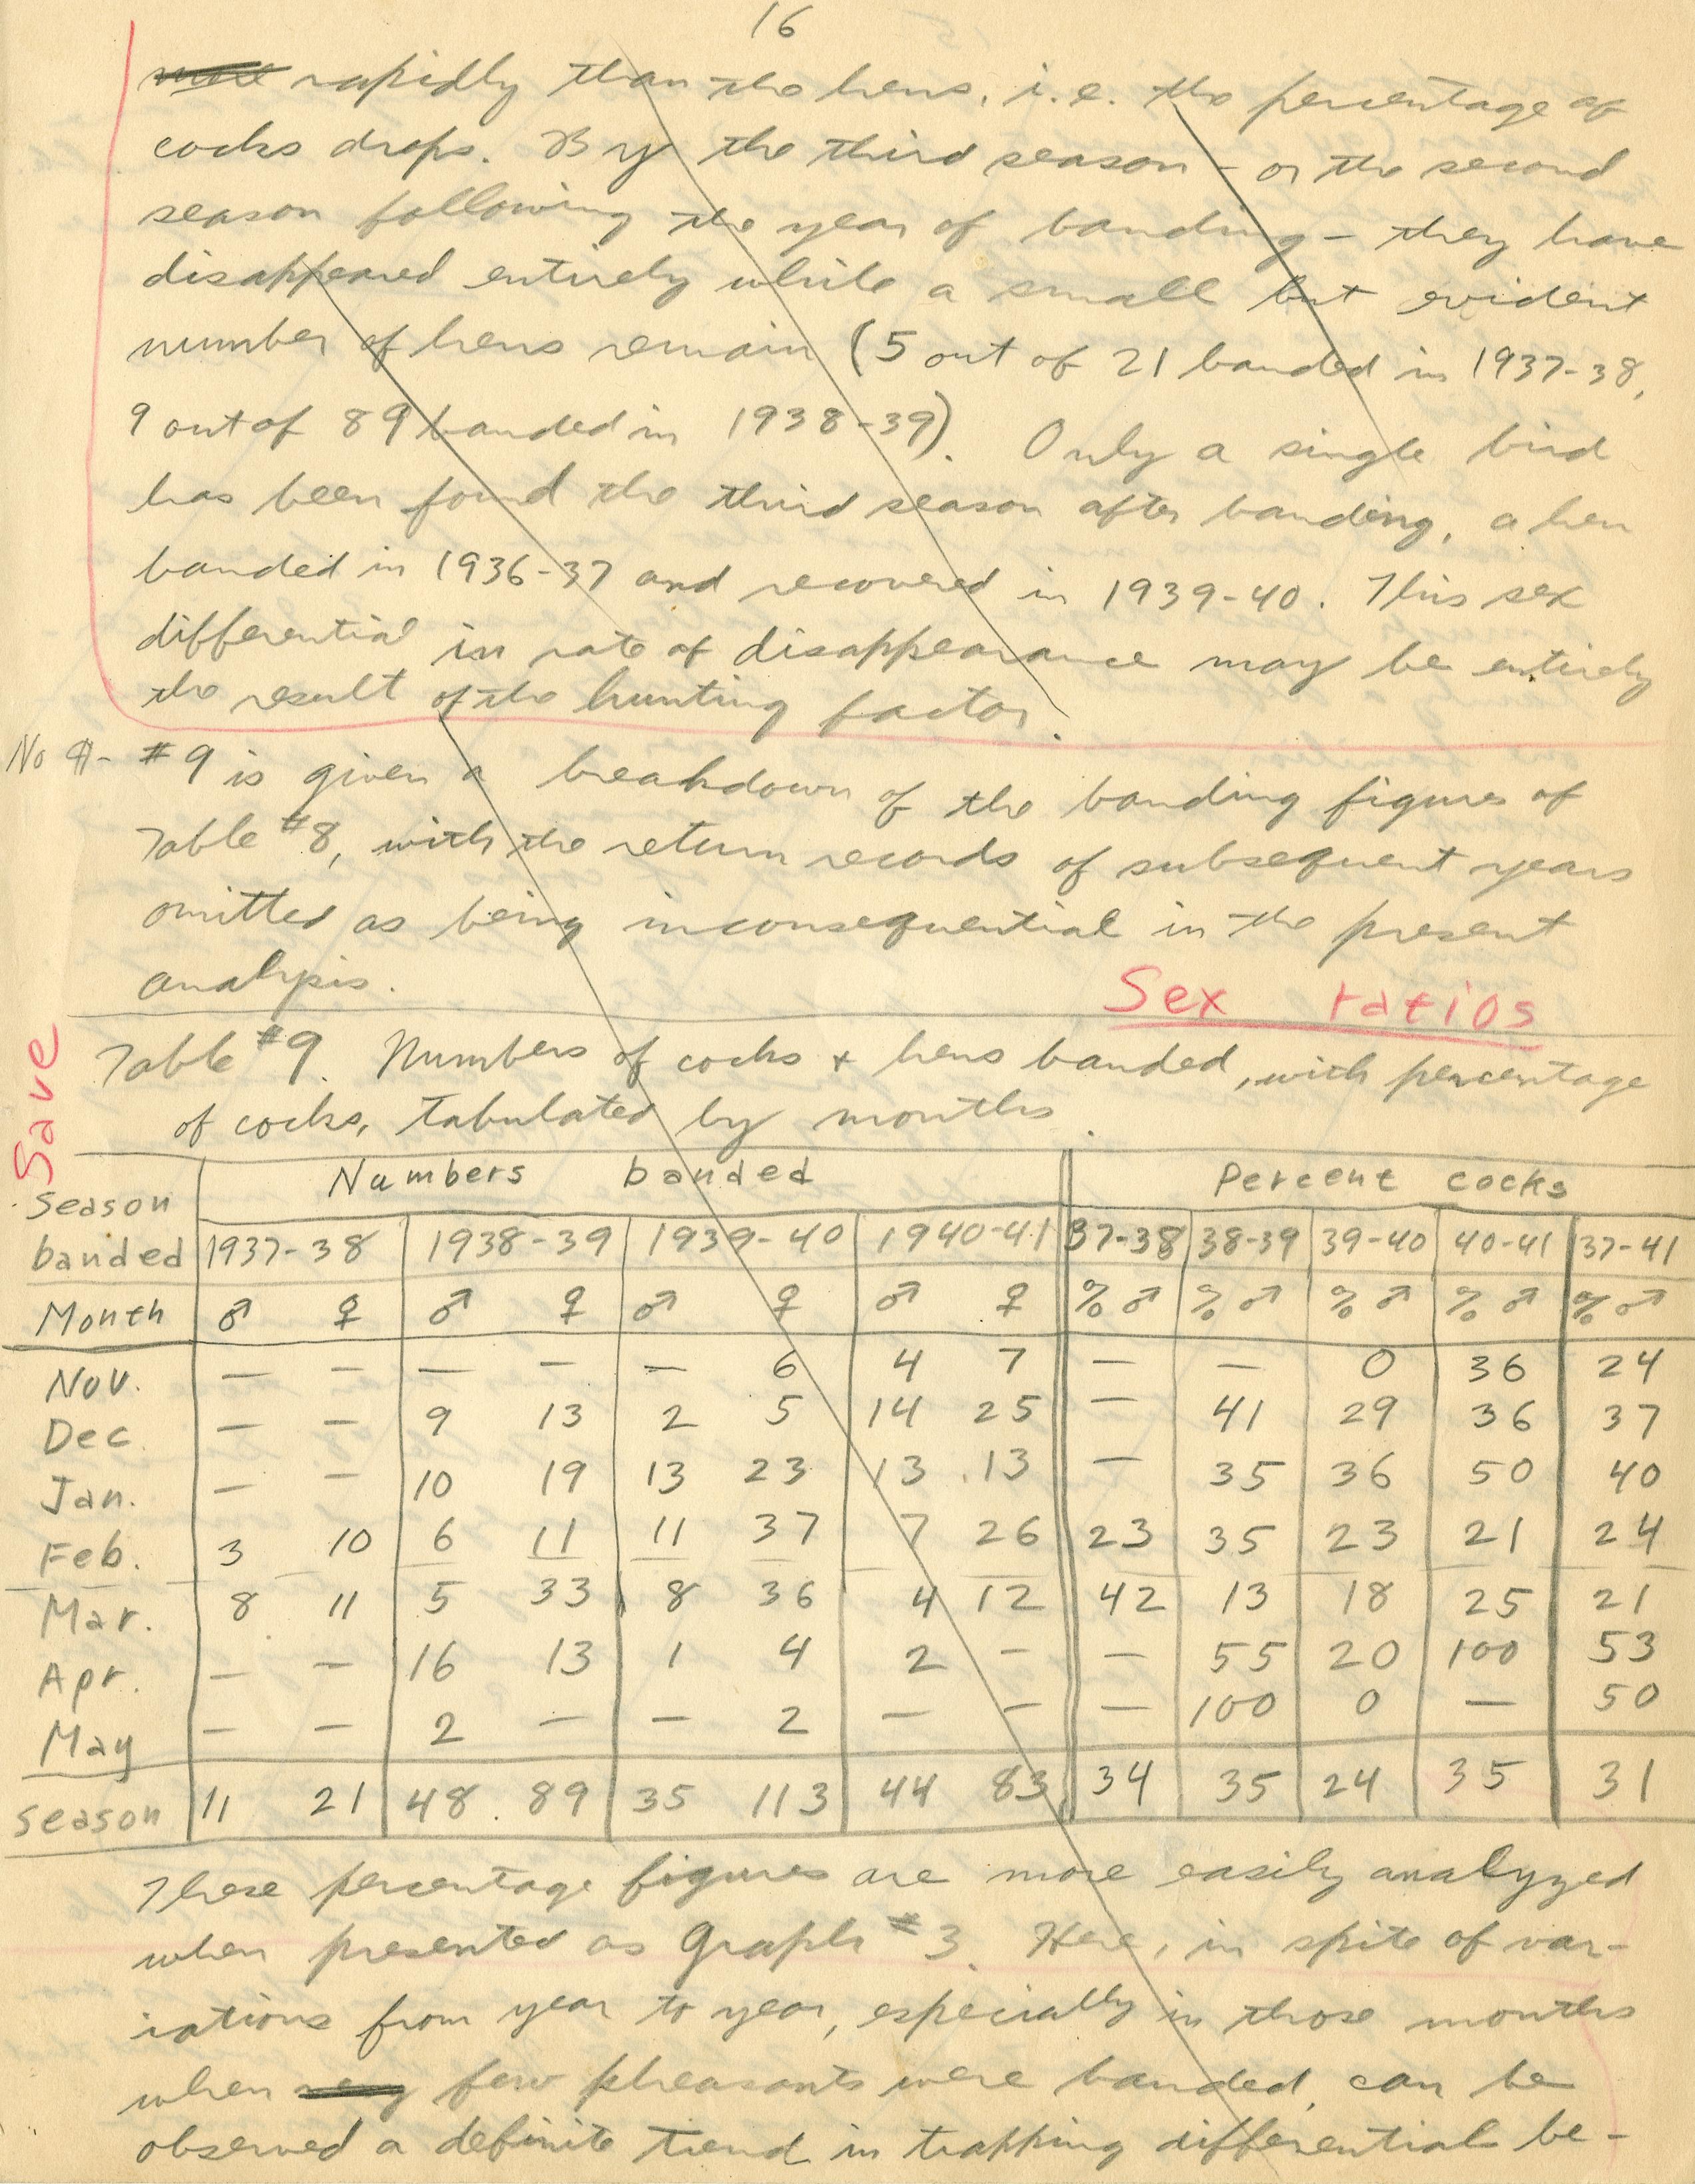 16
rapidly than the hens, i.e. the percentage of
cocks drops. By the third season - or the second
season following the year of banding - they have
disappeared entirely while a small but evident
number of hens remain (5 out of 21 banded in 1937-38,
9 out of 89 banded in 1938-39). Only a single bird
has been found the third season after banding, a hen
banded in 1936-37 and recovered in 1939-40. This sex
differential in rate of disappearance may be entirely
the result of the hunting factor.
No ¶- #9 is given a breakdown of the banding figures of
Table #8, with the return records of subsequent years
omitted as being inconsequential in the present
analysis.
Sex ratios
Save
Table #9. Numbers of cocks + hens banded, with percentage
of cocks, tabulated by months.
Numbers banded Percent cocks
Season
banded 1937-38 1938-39 1939-40 1940-41 37-38 38-39 39-40 40-41 37-41
Month ♂ ♀ ♂ ♀ ♂ ♀ ♂ ♀ % ♂ % ♂ % ♂ % ♂ % ♂
Nov. — — — — — 6 4 7 — — 0 36 24
Dec. — — 9 13 2 5 14 25 — 41 29 36 37
Jan. — — 10 19 13 23 13 13 — 35 36 50 40
Feb. 3 10 6 11 11 37 7 26 23 35 23 21 24
Mar. 8 11 5 33 8 36 4 12 42 13 18 25 21
Apr. — — 16 13 1 4 2 — — 55 20 100 53
May — — 2 — — 2 — — — 100 0 — 50
Season 11 21 48 89 35 113 44 83 34 35 24 35 31
These percentage figures are more easily analyzed
when presented as Graph #3. Here, in spite of var-
iations from year to year, especially in those months
when very few pheasants were banded, can be
observed a definite trend in trapping differential be-